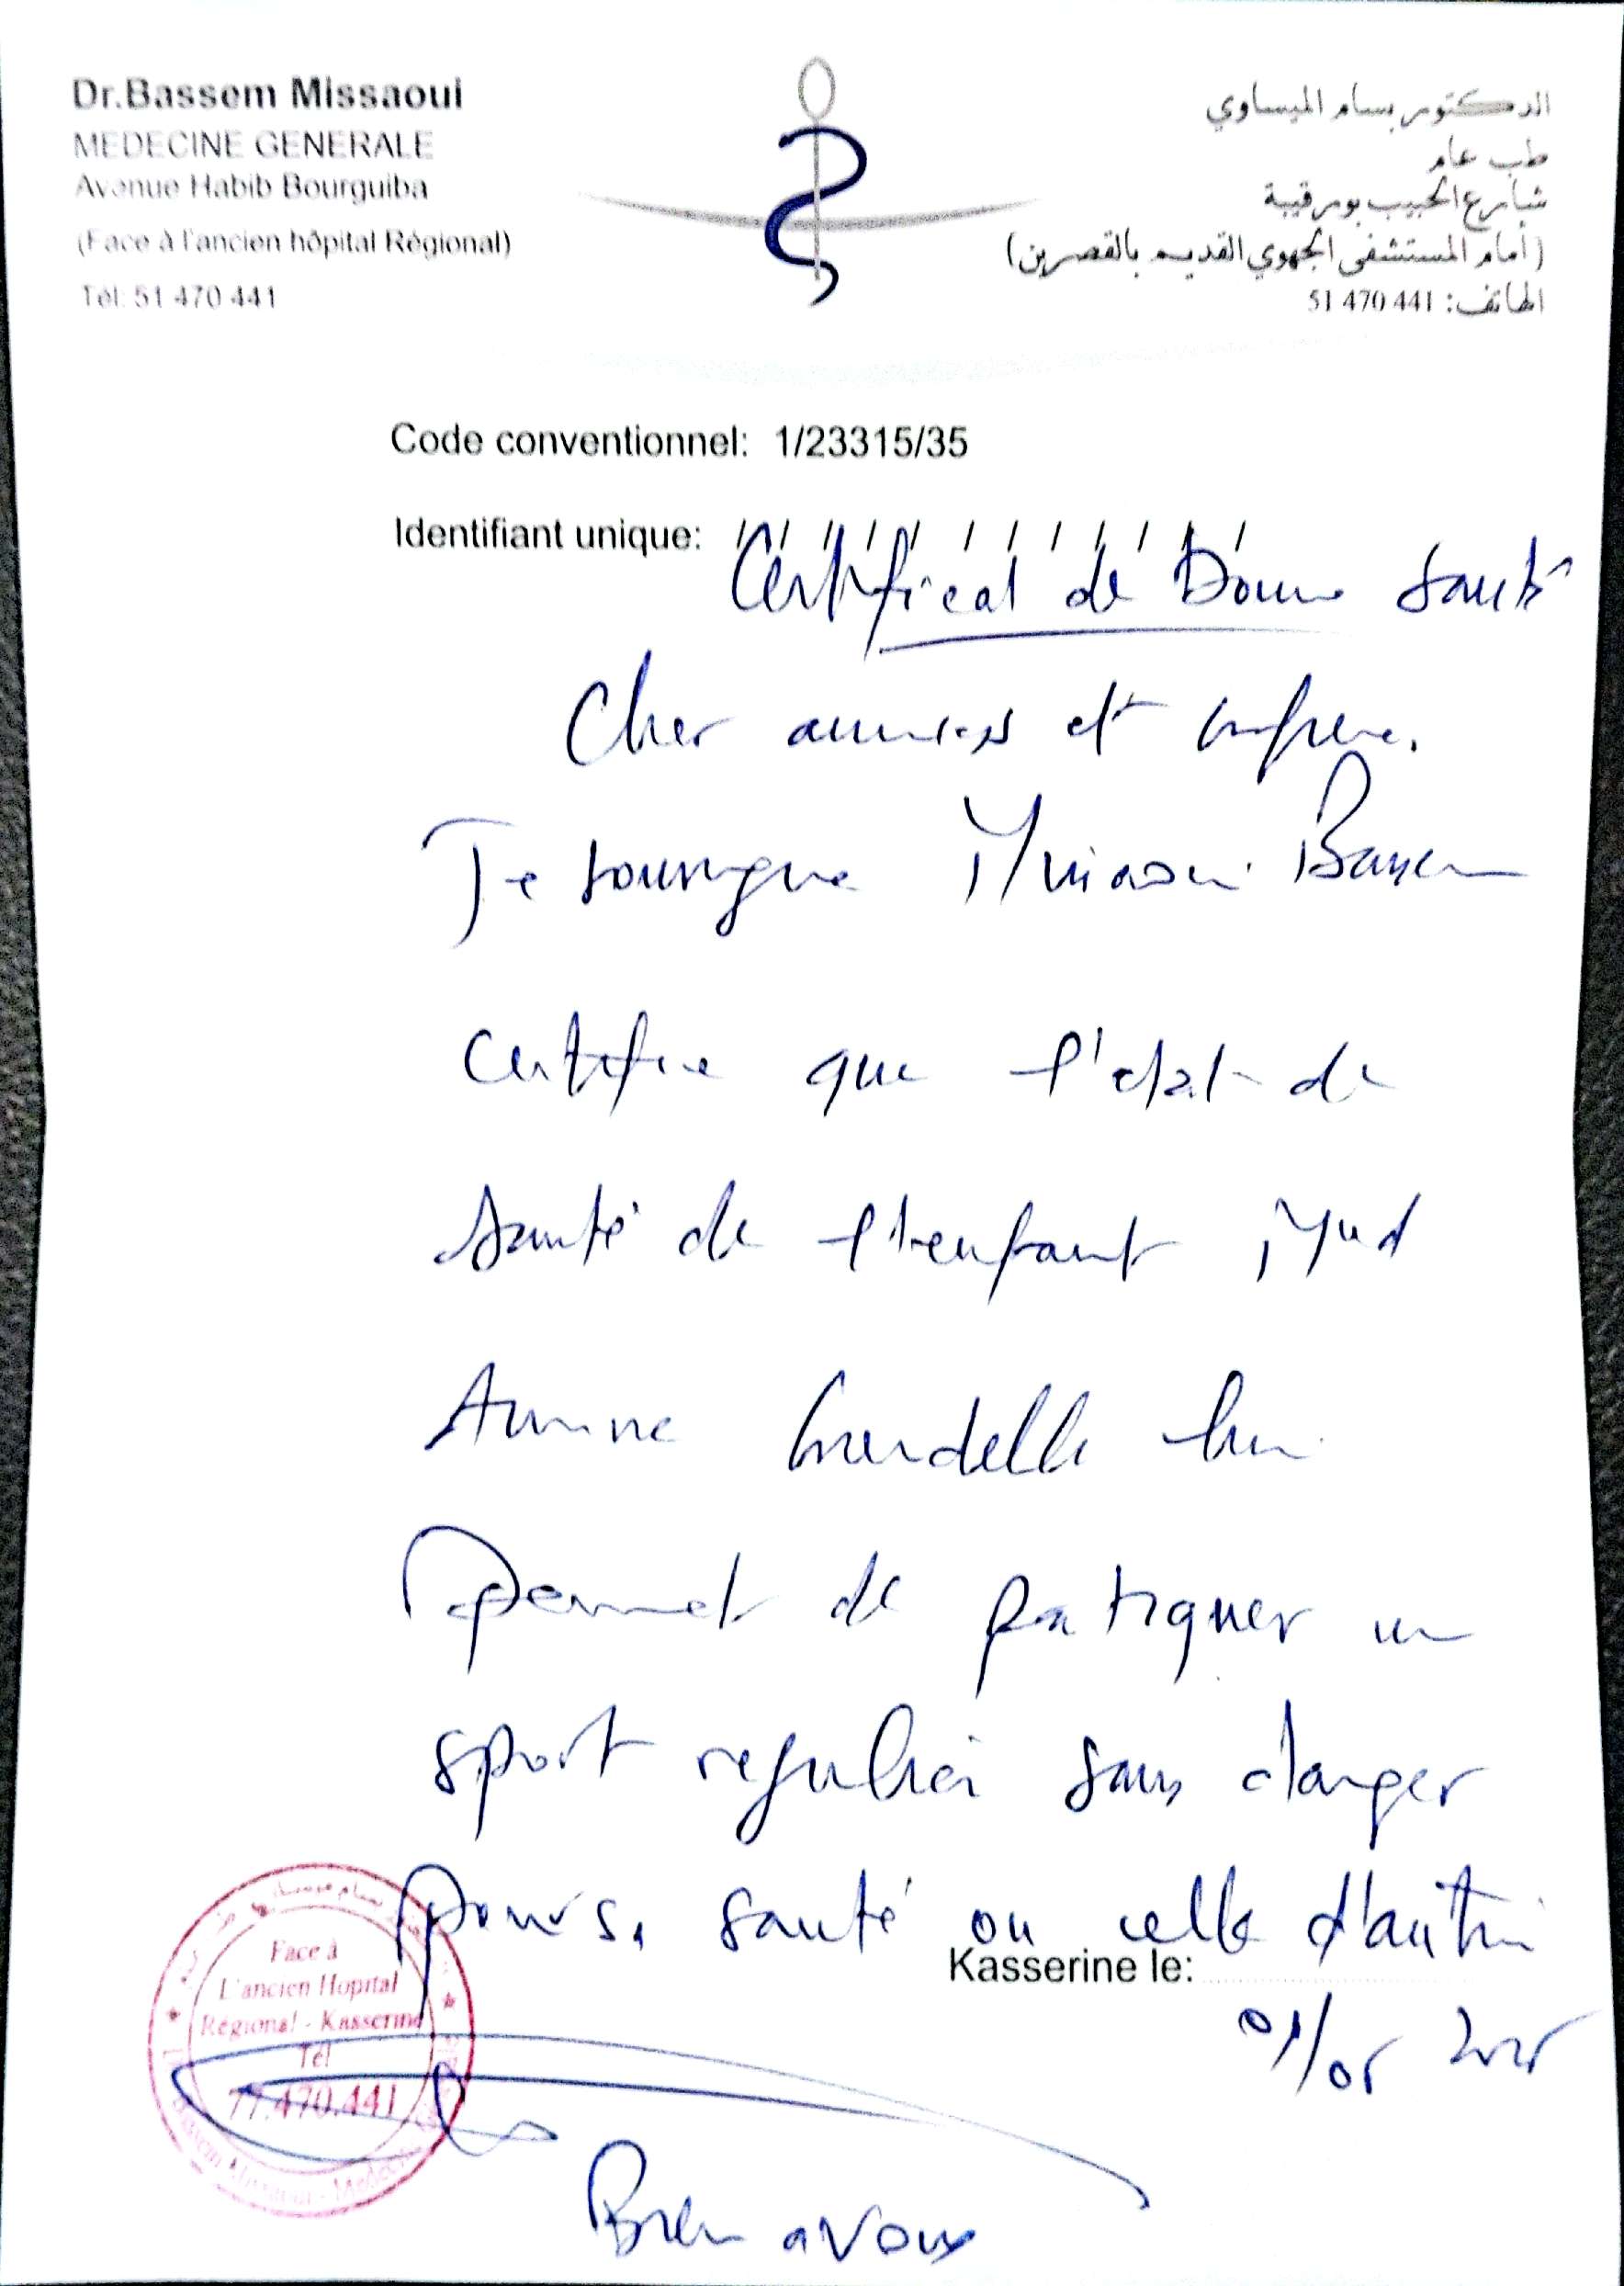 Dr.Bassem Missaoui
MEDECINE GENERALE
Avenue Habib Bourguiba
(Face à l'ancien hôpital Régional)
Tél: 51 470 441
الدكتور بسام الميساوي
طب عام
شارع الحبيب بورقيبة
(أمام المستشفى الجهوي القديم بالقصرين)
الهاتف: 51 470 441
Code conventionnel: 1/23315/35
Identifiant unique: / / / / / / / / / / / /
Certificat de bonne santé
Cher et confrere.
Je soussigne Bassem
Certifie que l'etat de
santé de l'enfant
Amine lui
permet de pratiquer un
sport regulier sans danger
pour sa santé ou celle d'autrui
Kasserine le:
Face à
L'ancien Hopital
Régional - Kasserine
Tél
77.470.441
Bien a vous